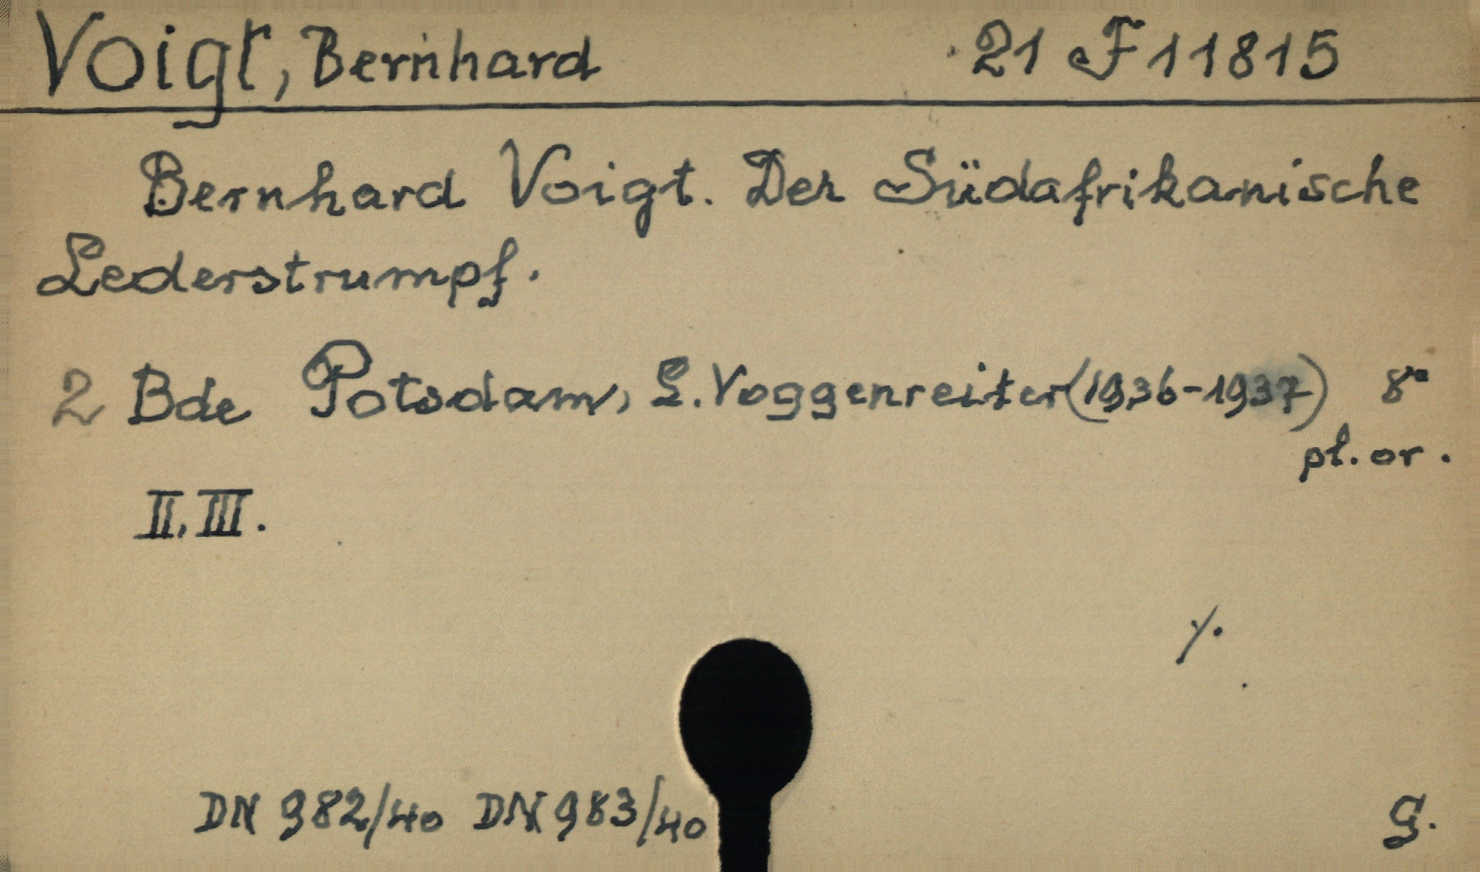 Voigt, Bernhard 21 F 11815
Bernhard Voigt. Der Südafrikanische
Lederstrumpf.
2 Bde Potsdam, L. Voggenreiter (1936-1937) 8°
pl. or.
II, III.
DN 982/40 DN 983/40 G.